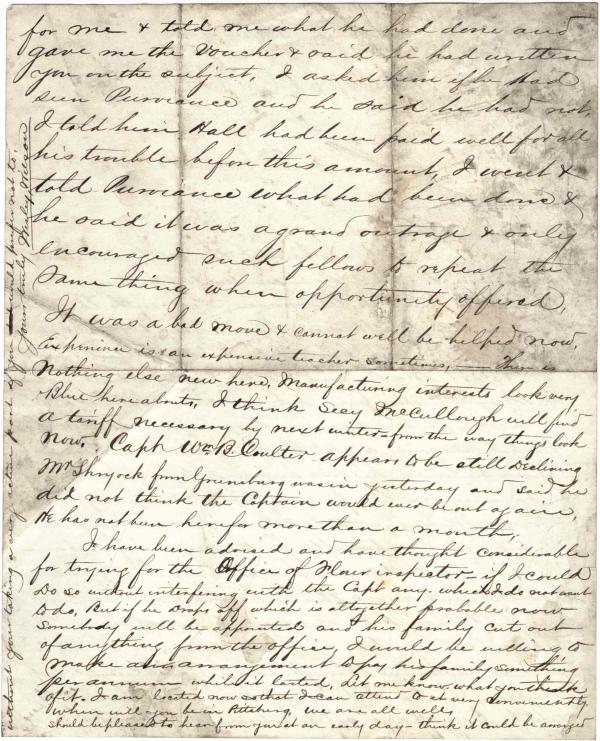 for me & told me what he had done and
gave me the Voucher & said he had written
you on the subject, I asked him if he Had
seen Purviance and he said he had not,
I told him Hall had been paid well for all
his trouble before this amount, I went &
told Purviance what had been done &
he said it was a grand outrage & only
encouraged such fellows to repeat the
same thing when opportunity offered,
It was a bad move & cannot well be helped now,
Experience is an expensive teacher sometimes, — There is
Nothing else new here, Manufacturing interests look very
Blue here abouts, I think Secy McCullough will find
a tariff necessary by next winter – from the way things look
now. Capt Wm. B. Coulter appears to be still Declining
Mr Shryock from Greensburg was in yesterday and said he
did not think the Captain would ever be out again,
He has not been here for more than a month,
I have been advised and have thought considerable
for trying for the Office of Flour inspector – if I could
Do so without interfering with the Capt any. which I do not want
to do, But if he Drops off which is altogether probable now
Somebody will be appointed and his family cut out
of anything from the office, I would be willing to
make an arrangement to pay his family something
per annum while it lasted, Let me know what you think
of it. I am located now so that I can attend to it very conveniently.
When will you be in Pittsburg, we are all well,
should be pleased to hear from you at an early day – think it could be arranged
without your taking a very active part if you would prefer not to,
Yours truly Wilson